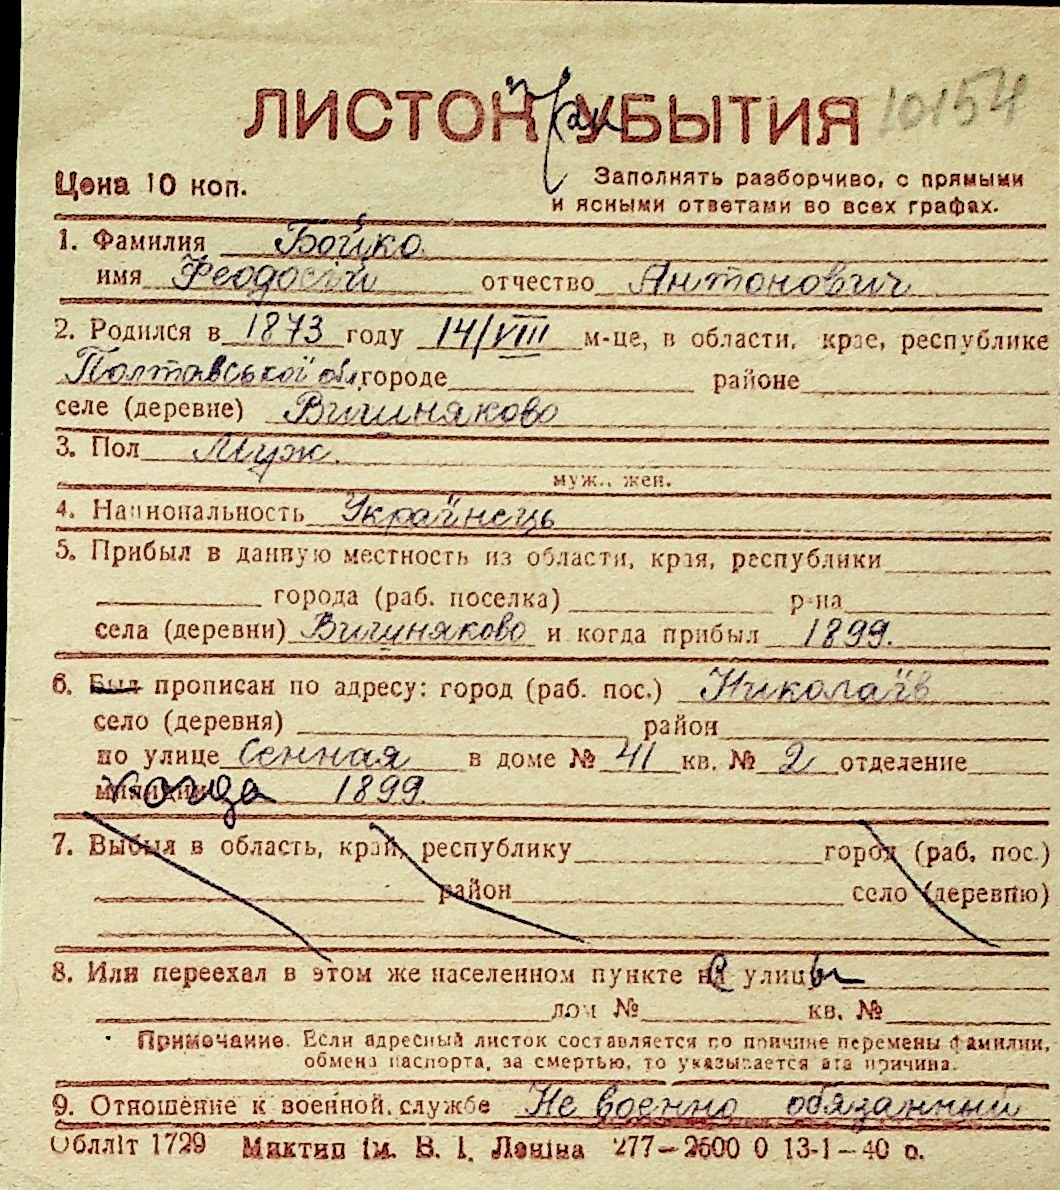 ЛИСТОК УБЫТИЯ 10154
Цена 10 коп.
Заполнять разборчиво, с прямыми
и ясными ответами во всех графах.
1. Фамилия Бойко
имя Феодосій отчество Антонович
2. Родился в 1873 году 14/VIII м-це, в области, крае, республике
Полтавської обл. городе районе
селе (деревне) Вишняково
3. Пол Муж.
муж., жен.
4. Национальность Українець
5. Прибыл в данную местность из области, края, республики
города (раб. поселка) р-на
села (деревни) Вишняково и когда прибыл 1899.
6. Был прописан по адресу: город (раб. пос.) Николаїв
село (деревня) район
по улице Сенная в доме № 41 кв. № 2 отделение
милиции когда 1899.
7. Выбыл в область, край, республику город (раб. пос.)
район село (деревню)
8. Или переехал в этом же населенном пункте с улицы
дом № кв. №
Примечание. Если адресный листок составляется по причине перемены фамилии,
обмена паспорта, за смертью, то указывается эта причина.
9. Отношение к военной службе Не военно обязанный
Облліт 1729 Миктип ім. В. І. Леніна 277-2600 0 13-1-40 р.